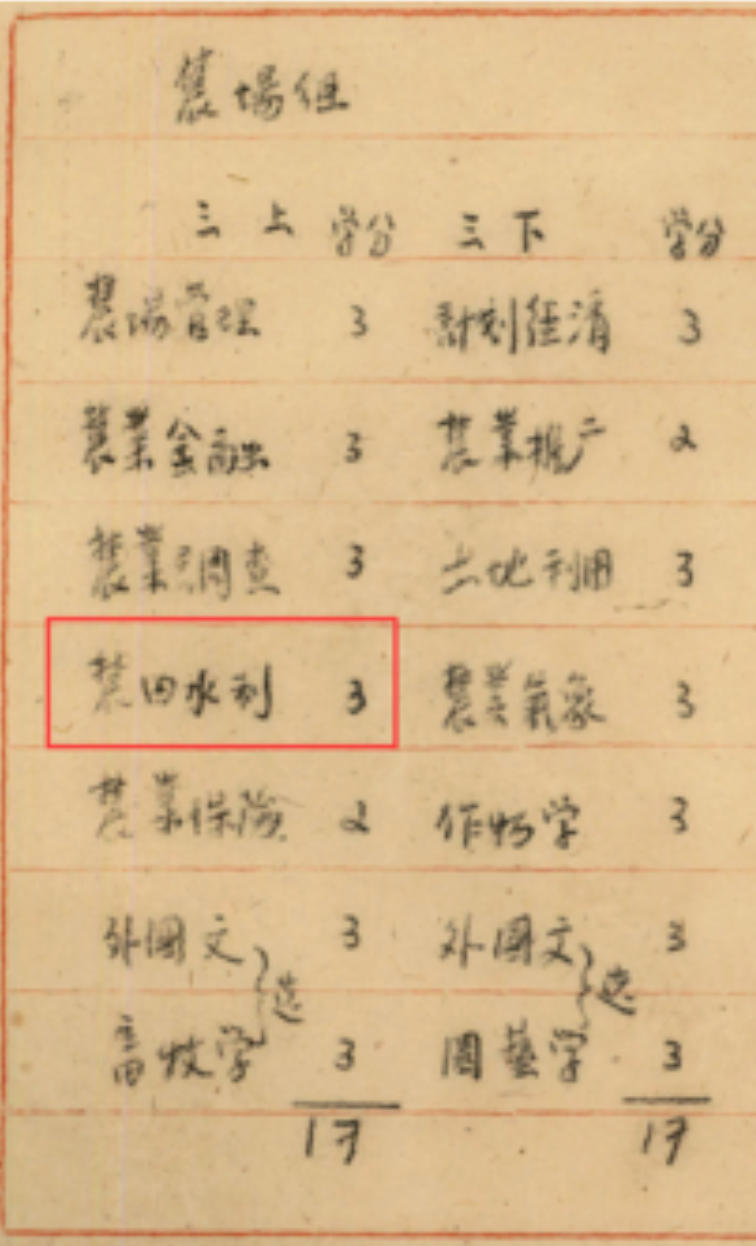 農場組
三上 学分 三下 学分
農場管理 3 計划経済 3
農業金融 3 農業推广 2
農業調查 3 土地利用 3
農田水利 3 農業氣象 3
農業保險 2 作物学 3
外國文 3 外國文 3
选 选
畜牧学 3 園藝学 3
17 17